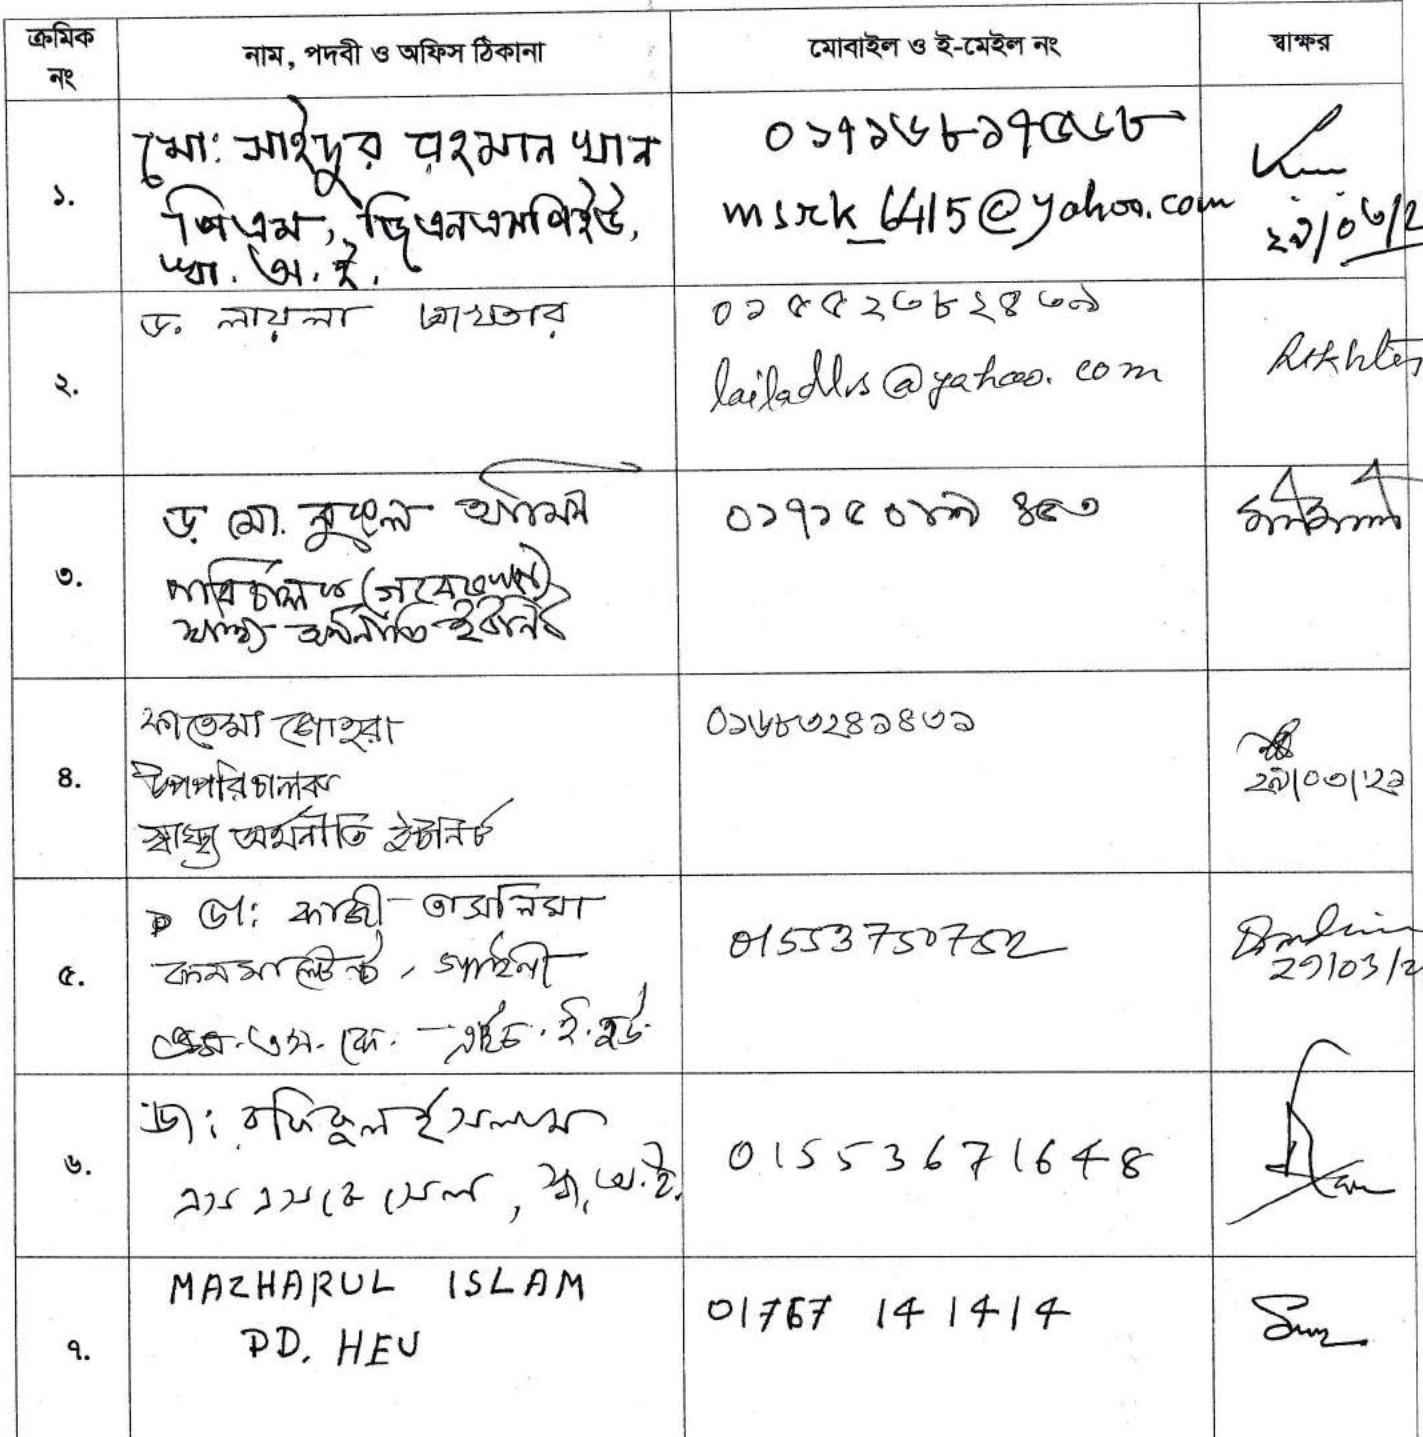 ক্রমিক নং
নাম, পদবী ও অফিস ঠিকানা
মোবাইল ও ই-মেইল নং
স্বাক্ষর
১.
মো: সাইদুর রহমান খান
পিএম, জিএনএসপিইউ,
স্বা. অ. ই.
msrk_6415@yahoo.com
২.
ড. লায়লা আখতার
০১৫৫২৩৮২৪৩৯
@yahoo.com
Akhter
৩.
ড. মো. নুরুল আমিন
পরিচালক (গবেষণা)
স্বাস্থ্য অর্থনীতি ইউনিট
৪.
ফাতেমা জোহরা
উপপরিচালক
স্বাস্থ্য অর্থনীতি ইউনিট
০১৬৮৩২৪১৪৩১
২৯/০৩/২১
৫.
ডা: কাজী তাসলিমা
কনসালটেন্ট, গাইনী
এস. এস. কে. - এইচ. ই. ইউ.
01553750752
29/03/2
৬.
ডা: রফিকুল ইসলাম
এস এস কে সেল, স্বা. অ. ই.
01553671648
৭.
MAZHARUL ISLAM
PD. HEU
01767 141414